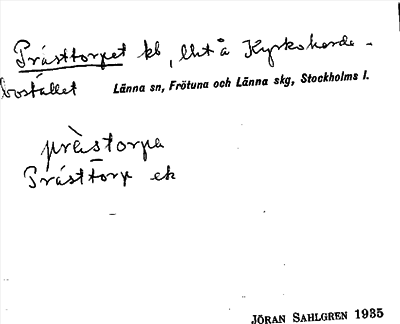 Prästtorpet kb, lht å Kyrkoherde-
bostället Länna sn, Frötuna och Länna skg, Stockholms l.
prästorpa
Prästtorp ek
JÖRAN SAHLGREN 1935